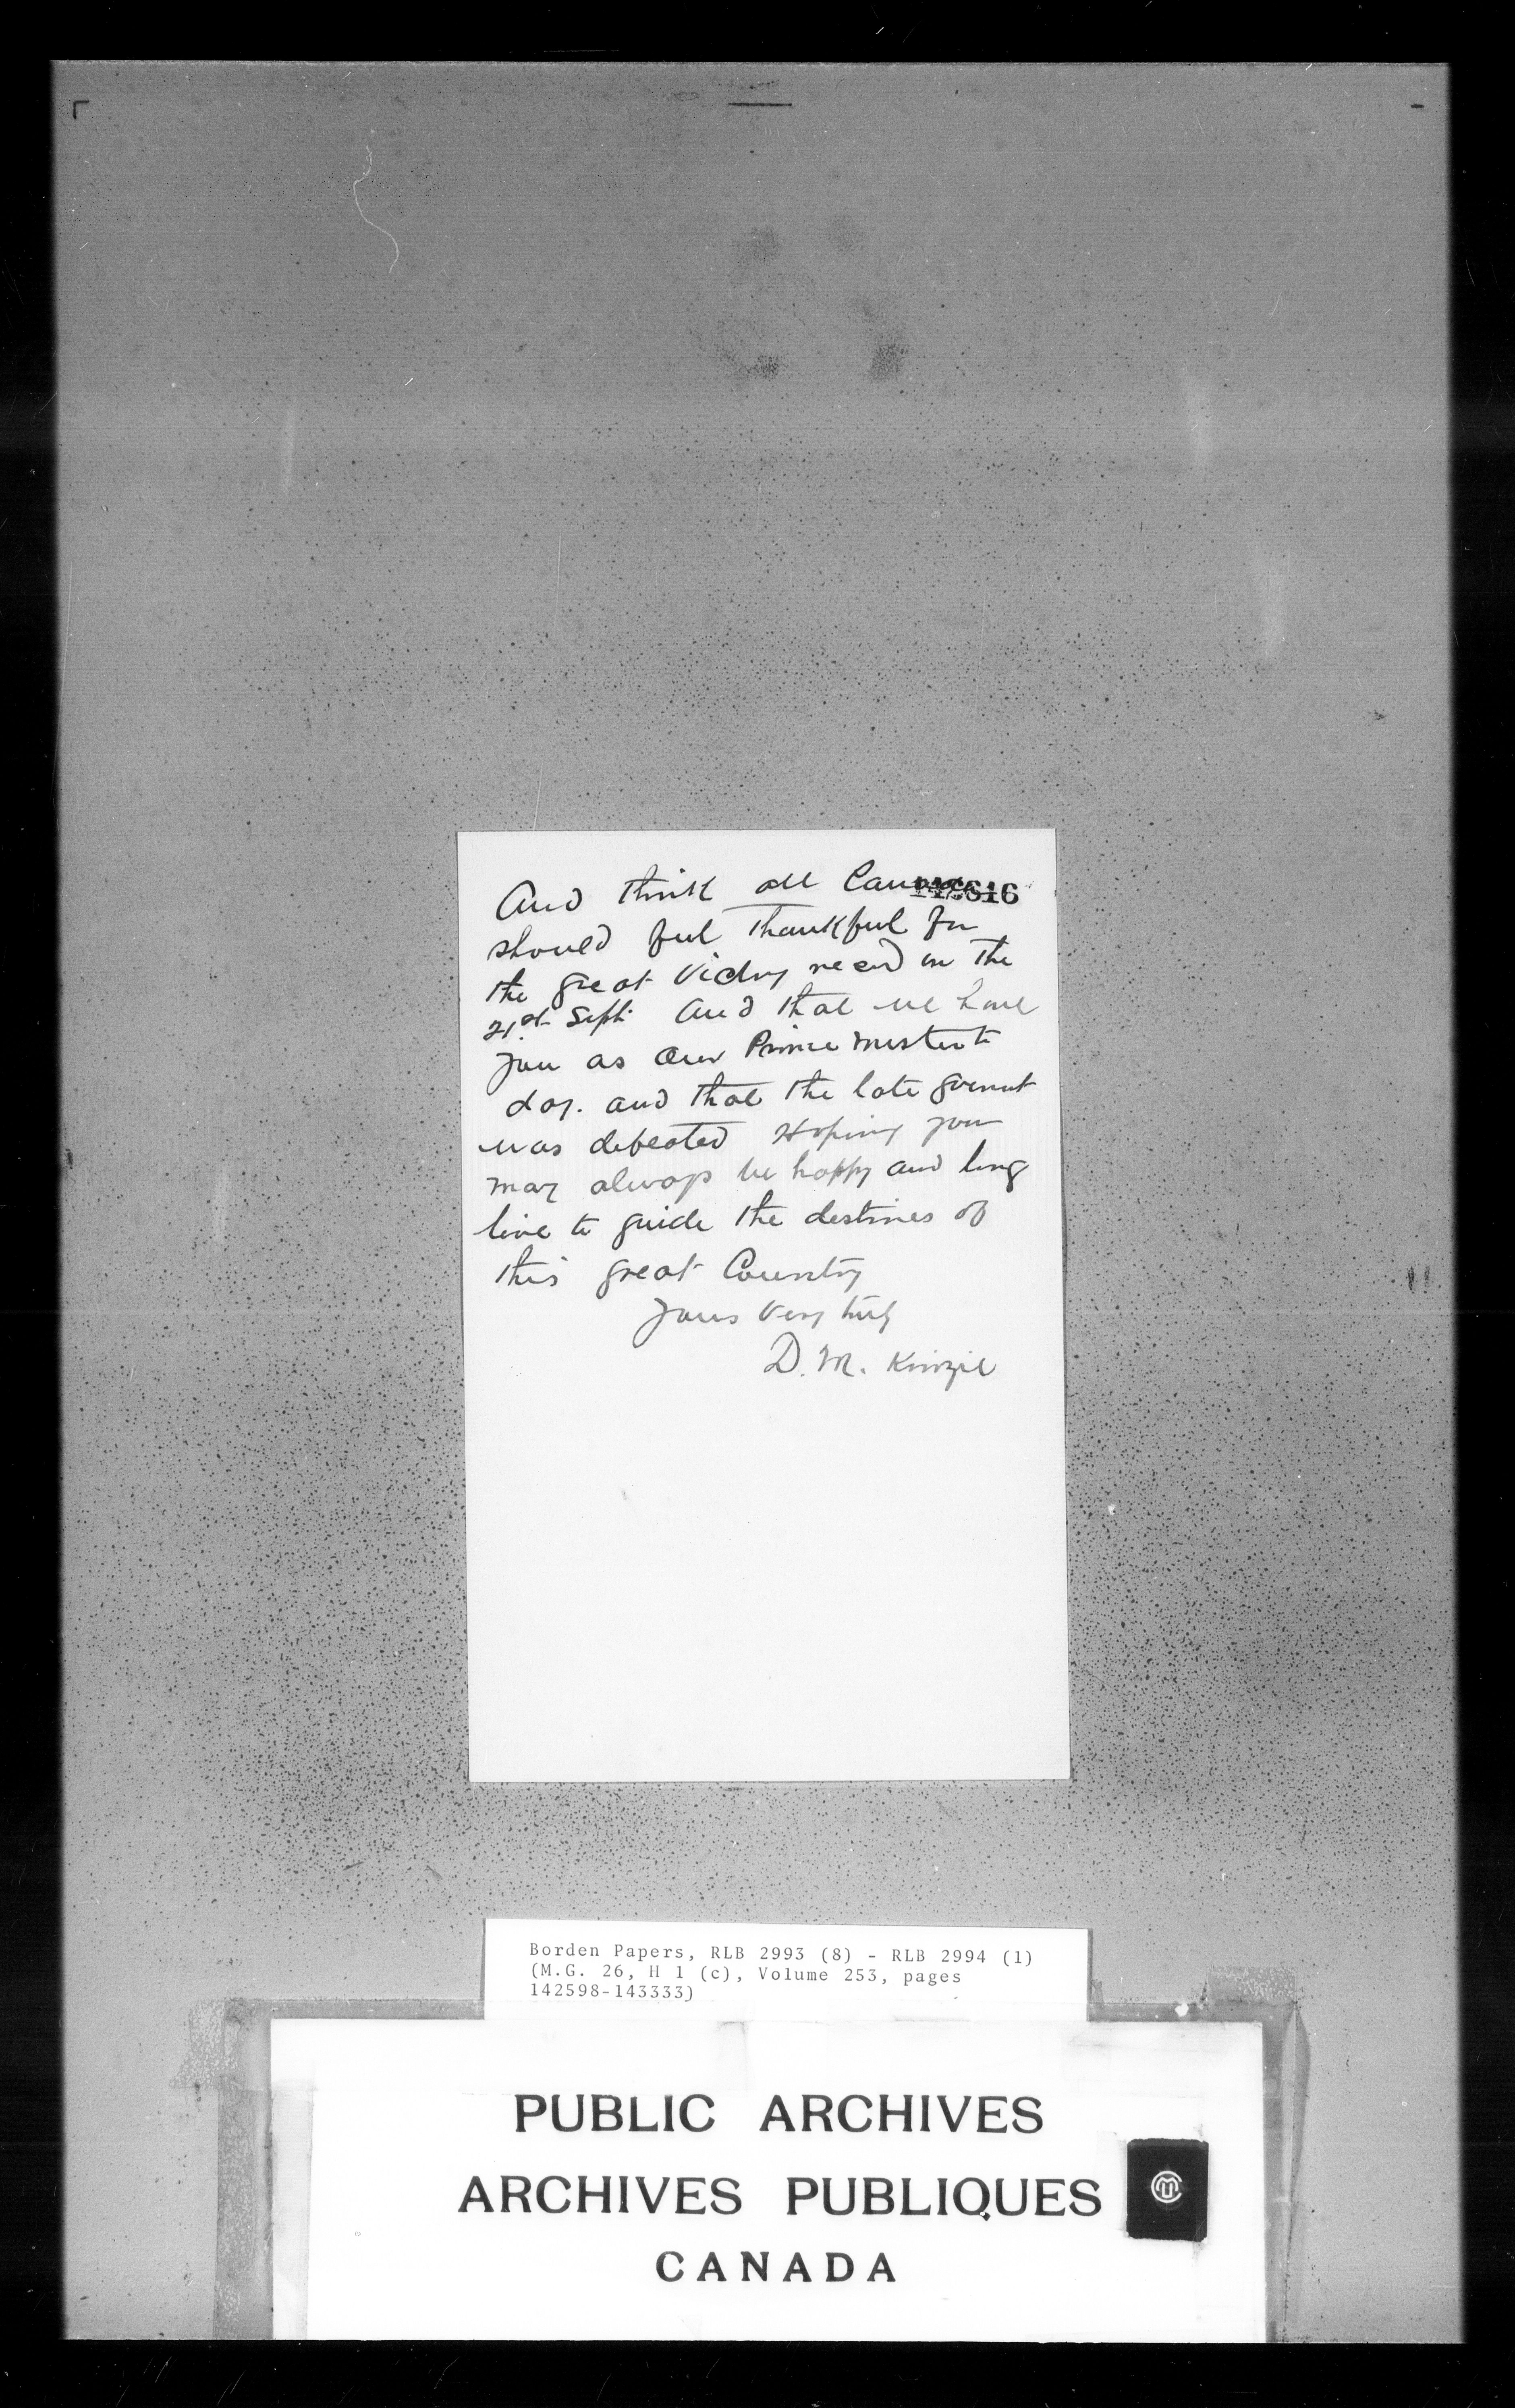 And think all Canada
142616
should feel thankful for
the great Victory recend on the
21st Sept. And that we have
you as our Prime Mister to
day. and that the late goverment
was defeated Hoping you
may always be happy and long
live to guide the destines of
this great Country
Yours Very truly
D. M. Kinzie
Borden Papers, RLB 2993 (8) - RLB 2994 (1)
(M.G. 26, H 1 (c), Volume 253, pages
142598-143333)
PUBLIC ARCHIVES
ARCHIVES PUBLIQUES
CANADA